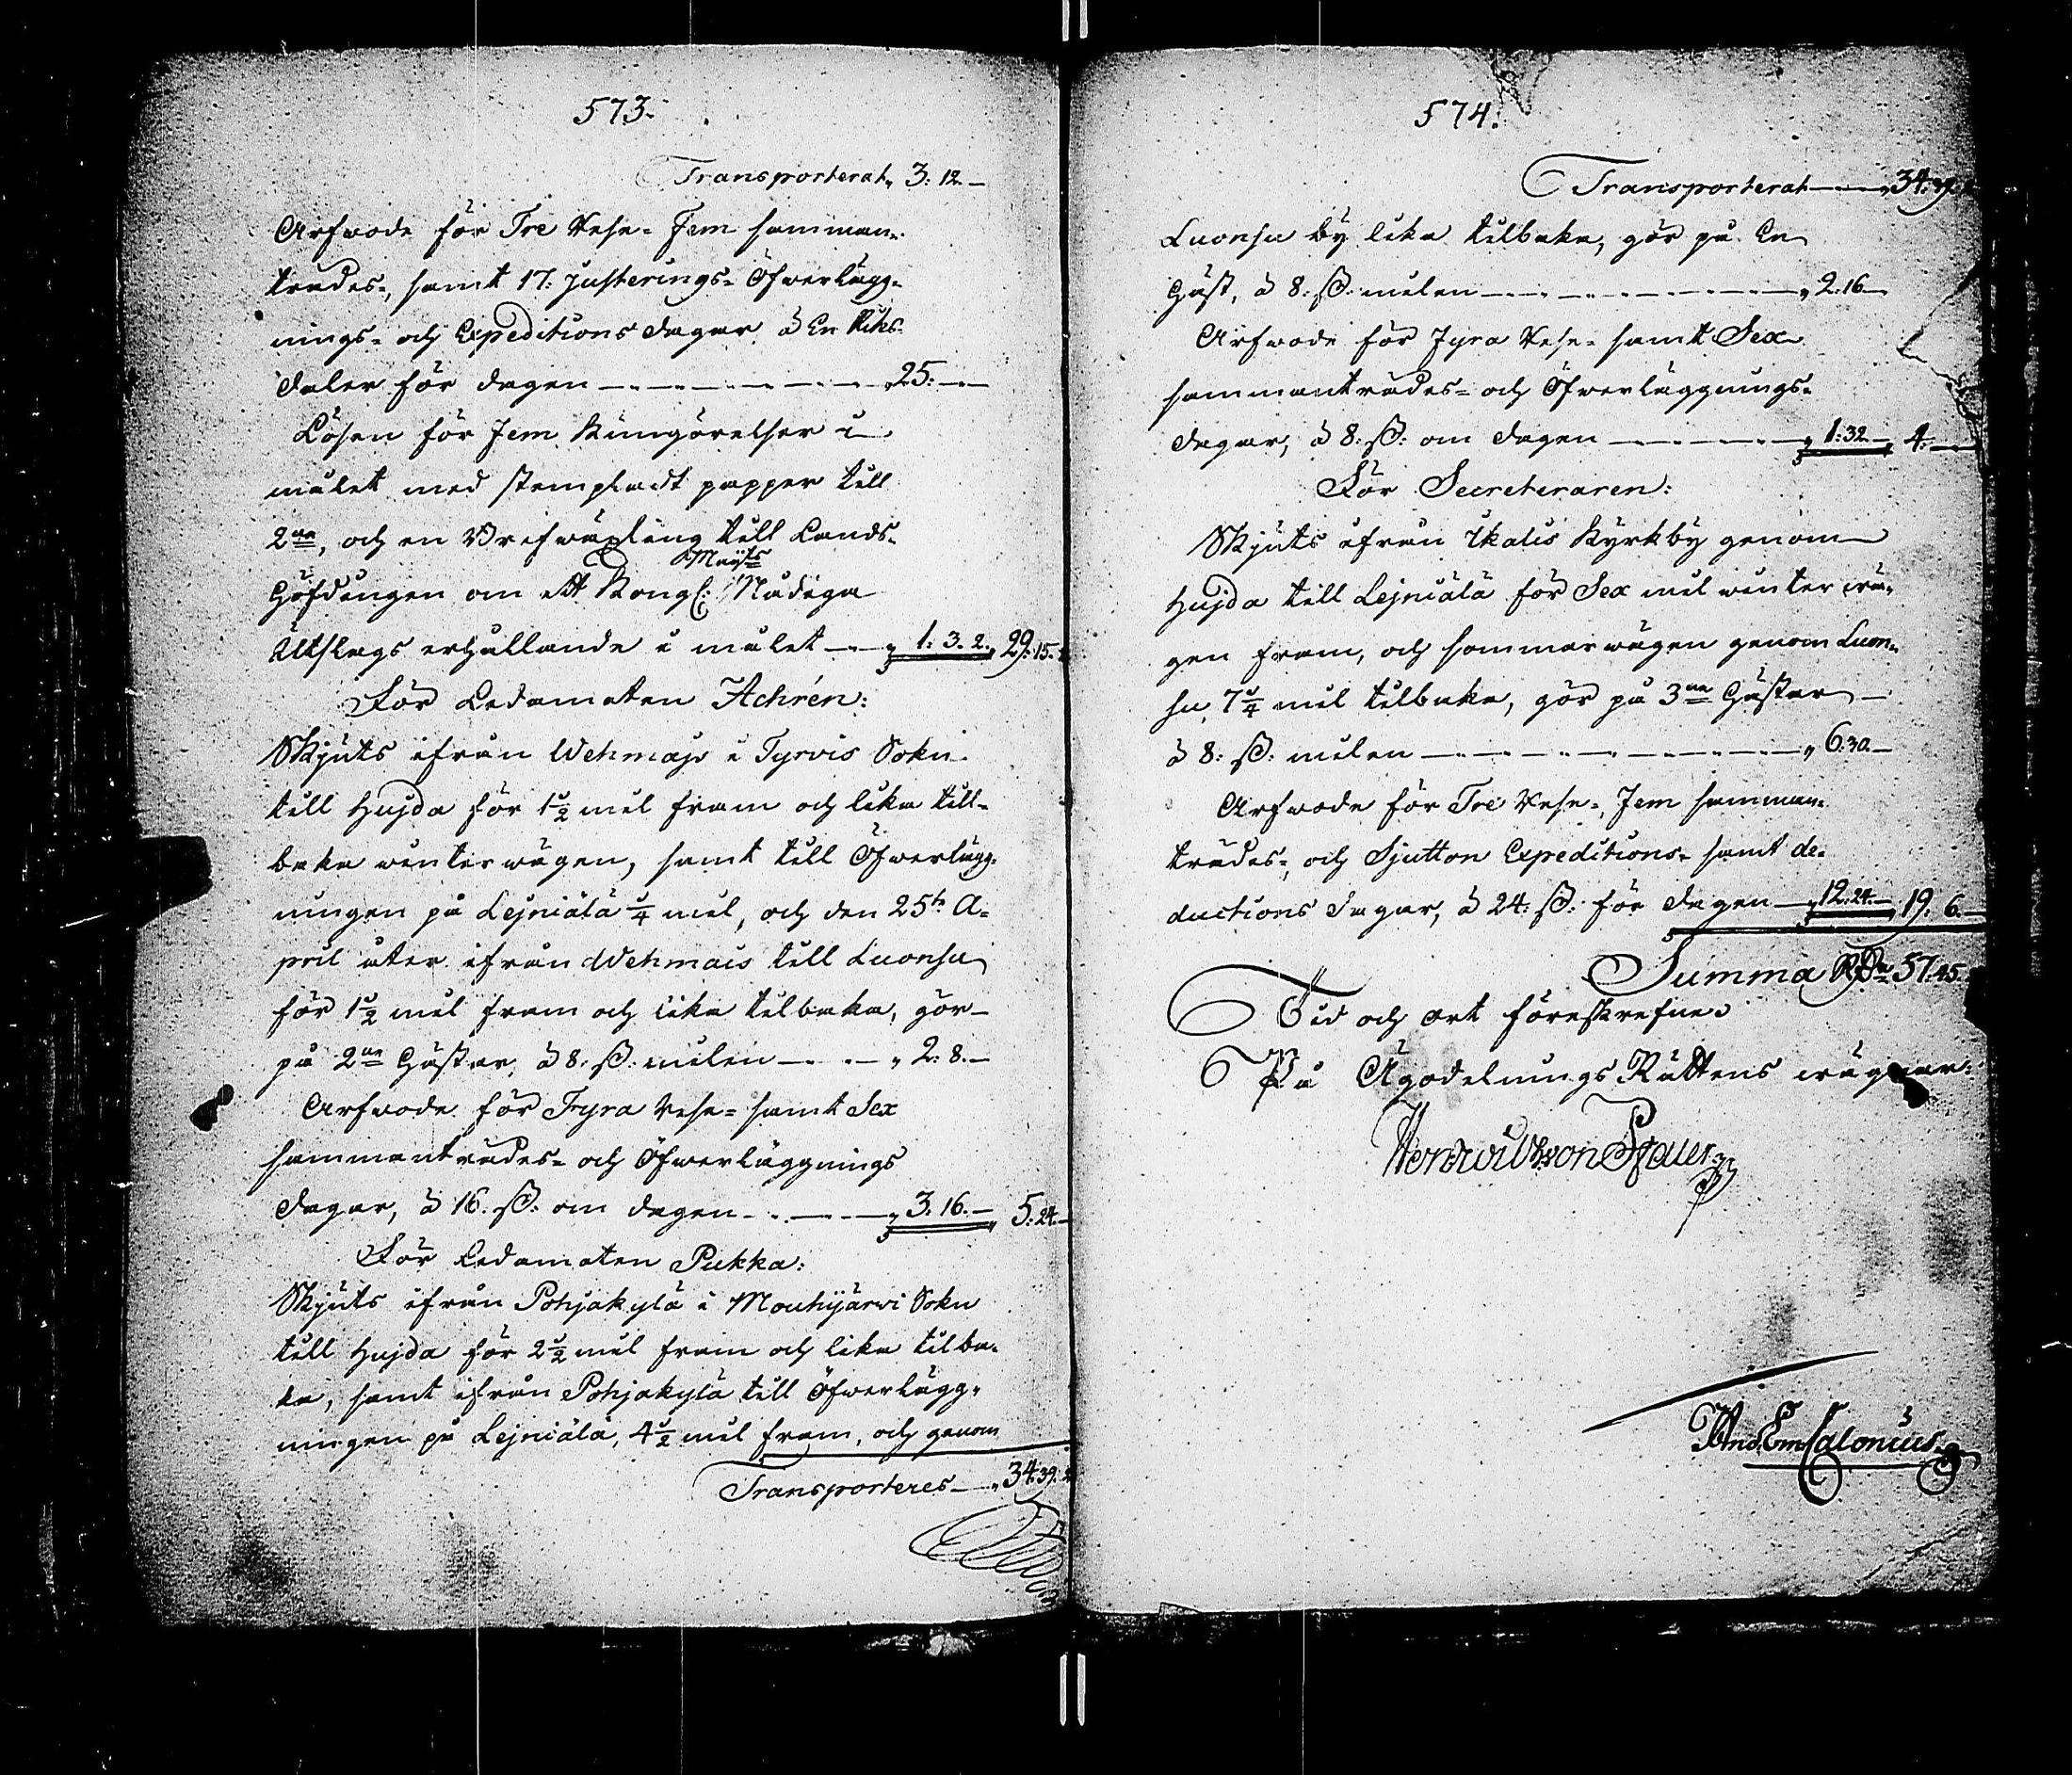 573.
Transporterat „ 3: 12. –
Arfwode för Tre Rese- Fem samman-
trädes-, samt 17. Justerings- Öfwerlägg-
nings- och Expeditions dagar à En Riks-
daler för dagen „ 25: –
Lösen för Fem Kungörelser i
målet med stempladt papper till
2ne, och en Brefwäxling till Lands-
Höfdingen om ett Kongl: Maÿts Nådiga
Utslags erhållande i målet „ 1: 3. 2. „ 29: 15.
För Ledamoten Achrén:
Skjuts ifrån Wehmajs i Tyrvis Sokn
till Hujda för 1 1/2 mil fram och lika till-
baka winterwägen, samt till Öfwerlägg-
ningen på Lejniälä 1/4 mil, och den 25te A-
pril åter ifrån Wehmais till Luonsu
för 1 1/2 mil fram och lika tilbaka, gör
på 2ne Hästar, à 8: ß: milen „ 2: 8. –
Arfwode för Fyra Rese- samt Sex
sammanträdes- och Öfwerläggnings
dagar, à 16. ß: om dagen „ 3. 16. – „ 5: 24. –
För Ledamoten Pukka:
Skjuts ifrån Pohjakylä i Mouhijärvi Sokn
till Hujda för 2 1/2 mil fram och lika tilba-
ka, samt ifrån Pohjakylä till Öfwerlägg-
ningen på Lejniälä, 4 1/2 mil fram, och genom
Transporteres „ 34: 39.
574.
Transporterat „ 34: 39.
Luonsu by lika tilbaka, gör på En
Häst, à 8: ß: milen „ 2: 16 –
Arfwode för Fyra Rese- samt Sex
sammanträdes- och Öfwerläggnings-
dagar, à 8: ß: om dagen „ 1: 32. – „ 4: –
För Secreteraren:
Skjuts ifrån Ikalis Kyrkby genom
Hujda till Lejniälä för Sex mil winter wä-
gen fram, och sommarwägen genom Luon-
su, 7 1/4 mil tilbaka, gör på 3ne Hästar –
à 8: ß: milen „ 6: 30. –
Arfwode för Tre Rese-, Fem samman-
trädes-, och Sjutton Expeditions- samt de-
ductions dagar, à 24: ß: för dagen „ 12: 24. – „ 19: 6. –
Summa RDr 57: 45.
Tid och ort förestrefne
På Ägodelnings Rättens wägnar:
And. Em. Calonius